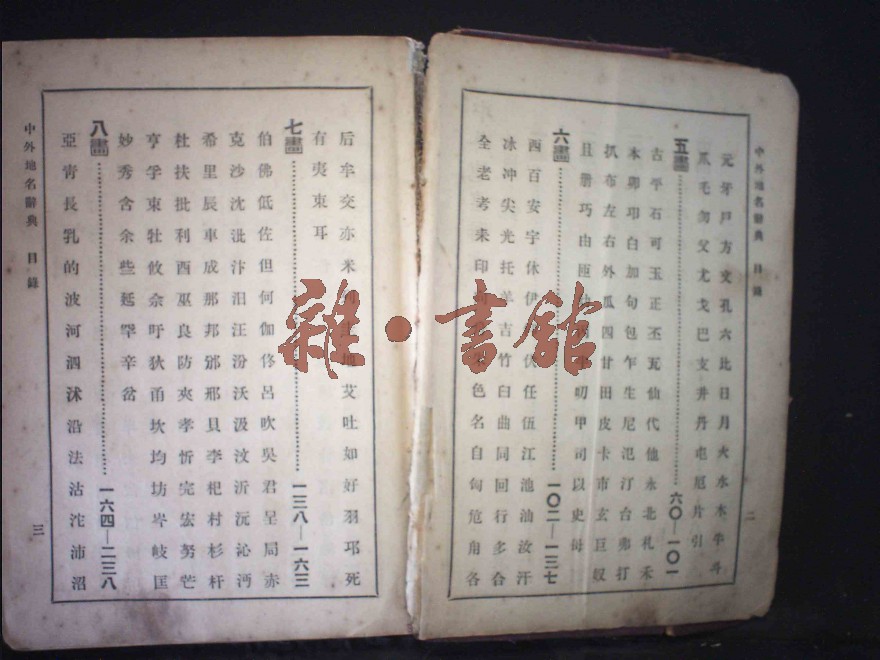 中外地名辭典 目錄
二
元牙戸方文孔六比日月火水木牛斗
爪毛勿父尤戈巴支井丹屯厄片引
五畫 六〇—一〇一
古平石可玉正丕瓦仙代他永北札禾
本卯功白加句包乍生尼氾汀台弗打
扒布左右外瓜四甘田皮卡市玄巨奴
且册巧由匝叨甲司以史母
六畫 一〇二—一三七
西百安宇休伊伏任伍江池汕汝汗
冰冲尖光托羊吉竹臼曲同回行多合
全老考耒印色名自匈危角各
后牟交亦米艾吐如好羽邛死
有夷朿耳
七畫 一三八—一六三
伯佛低佐但何伽佟呂吹吳君呈局赤
克沙沈沘汴汨汪汾沃汲汶沂沅沁沔
希里辰車成那邦邠邢貝李杞村杉杆
杜扶批利酉巫良防夾孝忻完宏努芒
亨孚束牡攸佘盱狄甬坎均坊岑岐匡
妙秀含余些延罕辛岔
八畫 一六四—二三八
亞靑長乳的波河泗沭沿法沽沱沛沼
中外地名辭典 目錄
三
雜·書館